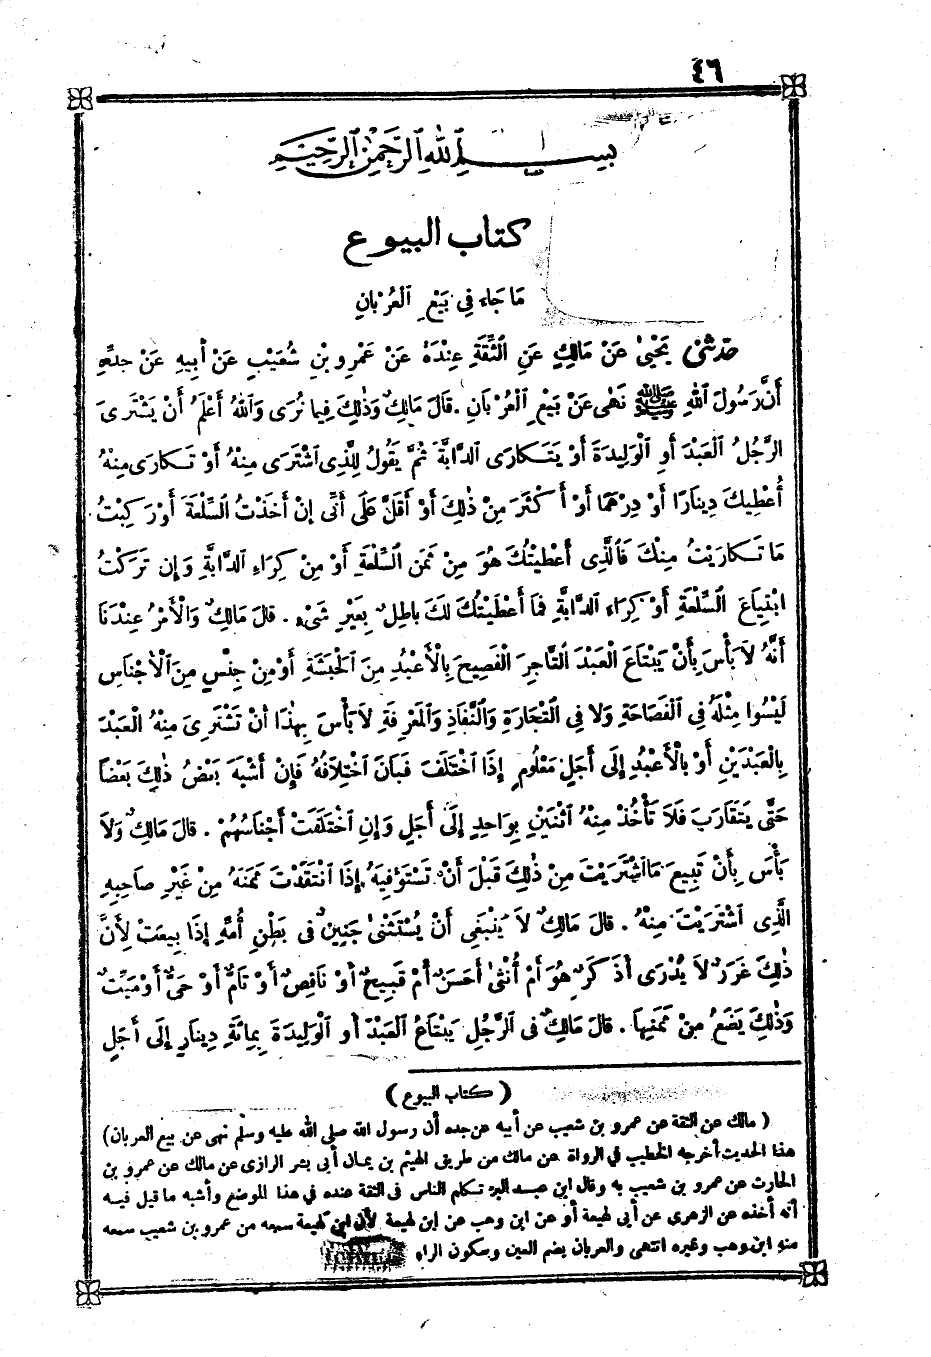 ٤٦
بِسْمِ اللهِ الرَّحْمٰنِ الرَّحِيمِ
كتاب البيوع
مَا جَاءَ فِي بَيْعِ الْعُرْبَانِ
حَدَّثَنِي يَحْيَىٰ عَنْ مَالِكٍ عَنِ الثِّقَةِ عِنْدَهُ عَنْ عَمْرِو بْنِ شُعَيْبٍ عَنْ أَبِيهِ عَنْ جَدِّهِ
أَنَّ رَسُولَ اللهِ ﷺ نَهَى عَنْ بَيْعِ الْعُرْبَانِ . قَالَ مَالِكٌ وَذٰلِكَ فِيمَا نُرَى وَاللهُ أَعْلَمُ أَنْ يَشْتَرِىَ
الرَّجُلُ الْعَبْدَ أَوِ الْوَلِيدَةَ أَوْ يَتَكَارَى الدَّابَّةَ ثُمَّ يَقُولُ لِلَّذِى اشْتَرَى مِنْهُ أَوْ تَكَارَى مِنْهُ
أُعْطِيكَ دِينَارًا أَوْ دِرْهَمًا أَوْ أَكْثَرَ مِنْ ذٰلِكَ أَوْ أَقَلَّ عَلَى أَنِّى إِنْ أَخَذْتُ السِّلْعَةَ أَوْ رَكِبْتُ
مَا تَكَارَيْتُ مِنْكَ فَالَّذِى أَعْطَيْتُكَ هُوَ مِنْ ثَمَنِ السِّلْعَةِ أَوْ مِنْ كِرَاءِ الدَّابَّةِ وَإِنْ تَرَكْتُ
ابْتِيَاعَ السِّلْعَةِ أَوْ كِرَاءَ الدَّابَّةِ فَمَا أَعْطَيْتُكَ لَكَ بَاطِلٌ بِغَيْرِ شَىْءٍ . قَالَ مَالِكٌ وَالْأَمْرُ عِنْدَنَا
أَنَّهُ لَا بَأْسَ بِأَنْ يَبْتَاعَ الْعَبْدَ التَّاجِرَ الْفَصِيحَ بِالْأَعْبُدِ مِنَ الْحَبَشَةِ أَوْ مِنْ جِنْسٍ مِنَ الْأَجْنَاسِ
لَيْسُوا مِثْلَهُ فِي الْفَصَاحَةِ وَلَا فِي التِّجَارَةِ وَالنَّفَاذِ وَالْمَعْرِفَةِ لَا بَأْسَ بِهٰذَا أَنْ تَشْتَرِىَ مِنْهُ الْعَبْدَ
بِالْعَبْدَيْنِ أَوْ بِالْأَعْبُدِ إِلَى أَجَلٍ مَعْلُومٍ إِذَا اخْتَلَفَ فَبَانَ اخْتِلَافُهُ فَإِنْ أَشْبَهَ بَعْضُ ذٰلِكَ بَعْضًا
حَتَّى يَتَقَارَبَ فَلَا تَأْخُذْ مِنْهُ اثْنَيْنِ بِوَاحِدٍ إِلَى أَجَلٍ وَإِنِ اخْتَلَفَتْ أَجْنَاسُهُمْ . قَالَ مَالِكٌ وَلَا
بَأْسَ بِأَنْ تَبِيعَ مَا اشْتَرَيْتَ مِنْ ذٰلِكَ قَبْلَ أَنْ تَسْتَوْفِيَهُ إِذَا انْتَقَدْتَ ثَمَنَهُ مِنْ غَيْرِ صَاحِبِهِ
الَّذِى اشْتَرَيْتَ مِنْهُ . قَالَ مَالِكٌ لَا يَنْبَغِى أَنْ يُسْتَثْنَىٰ جَنِينٌ فِى بَطْنِ أُمِّهِ إِذَا بِيعَتْ لِأَنَّ
ذٰلِكَ غَرَرٌ لَا يُدْرَى أَذَكَرٌ هُوَ أَمْ أُنْثَىٰ أَحَسَنٌ أَمْ قَبِيحٌ أَوْ نَاقِصٌ أَوْ تَامٌّ أَوْ حَىٌّ أَوْ مَيِّتٌ
وَذٰلِكَ يَضَعُ مِنْ ثَمَنِهَا . قَالَ مَالِكٌ فِى الرَّجُلِ يَبْتَاعُ الْعَبْدَ أَوِ الْوَلِيدَةَ بِمِائَةِ دِينَارٍ إِلَى أَجَلٍ
( كتاب البيوع )
( مالك عن الثقة عن عمرو بن شعيب عن أبيه عن جده أن رسول الله صلى الله عليه وسلم نهى عن بيع العربان )
هذا الحديث أخرجه الخطيب في الرواة عن مالك من طريق الهيثم بن يمان أبى بشر الرازى عن مالك عن عمرو بن
الحارث عن عمرو بن شعيب به وقال ابن عبد البر تكلم الناس فى الثقة عنده في هذا الموضع وأشبه ما قيل فيه
أنه أخذه عن الزهرى عن أبى لهيعة أو عن ابن وهب عن ابن لهيعة لأن ابن لهيعة سمعه من عمرو بن شعيب سمعه
منه ابن وهب وغيره انتهى والعربان بضم العين وسكون الراء